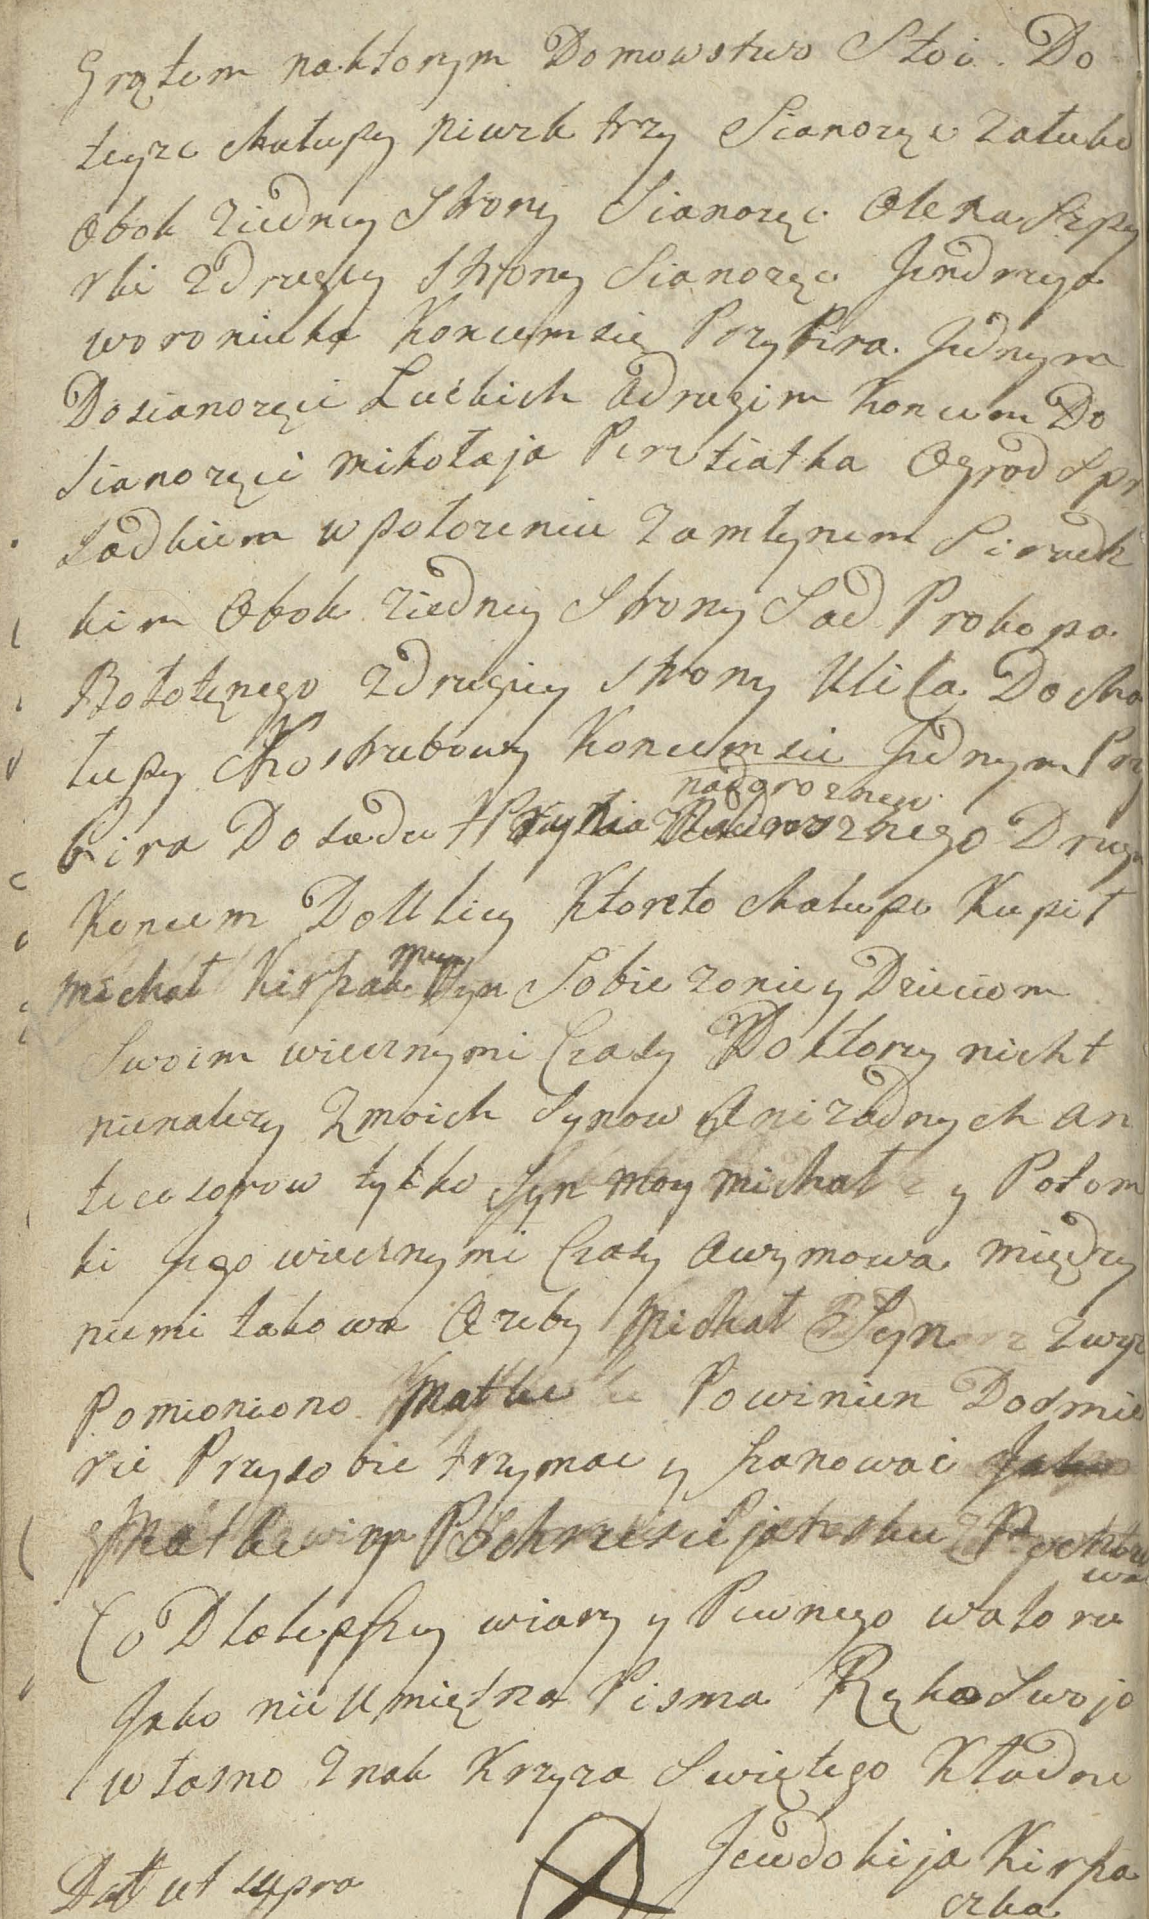 Grątem naktorym Domowstwo Stoi. Do
teyze chałupy piwrk trzy Sianozęc zatuke
Obok ziedney Strony Sianozęc Olexa Szpy
rki zdrugiey Strony Sianozęc Jendrzeja
woroniecka Koncemsię Przypira Jednym
Dosianozęci Luckich Adrugim Koncem Do
Sianozęci mikołaja Pirztiatka Ogrod Spr
Sadkiem wpołozeniu zamłynem Siradz
kim Obok ziedney Strony Sad Prokopa
Bołotęnego zdrugiey strony Ulica Do cha
łupy Kostrubowy Koncemsie Jednym Prz
nadgroznew
pira Dosadu Nadrosznego Drug
Koncem DoUlicy Ktoreto chałupe Kupił
michał Kirpak Syn Sobie zonie y Dzieciom
Swoim wiecznymi Czasy Doktorey nicht
nienalezy zmoich Synow Ani zadnych an
tecesorow tylko Syn moy michał y Potom
ki jego wiecznymi Czasy Awymowa między
niemi takowa Azeby Michał Syn zwyz
pomioniono Matke Powinien Dosmie
rci Przysobie trzymac y szanowac Jako
Matke y Pochrzescijansku Pochow
wac
Co Dlalepszey wiary y Pewnego waloru
Jako nie Umiętna Pisma Ręko Swojo
własno znak Krzyza Swiętego Kładne
Jewdokija Kirpa
czka
Dat ut supra